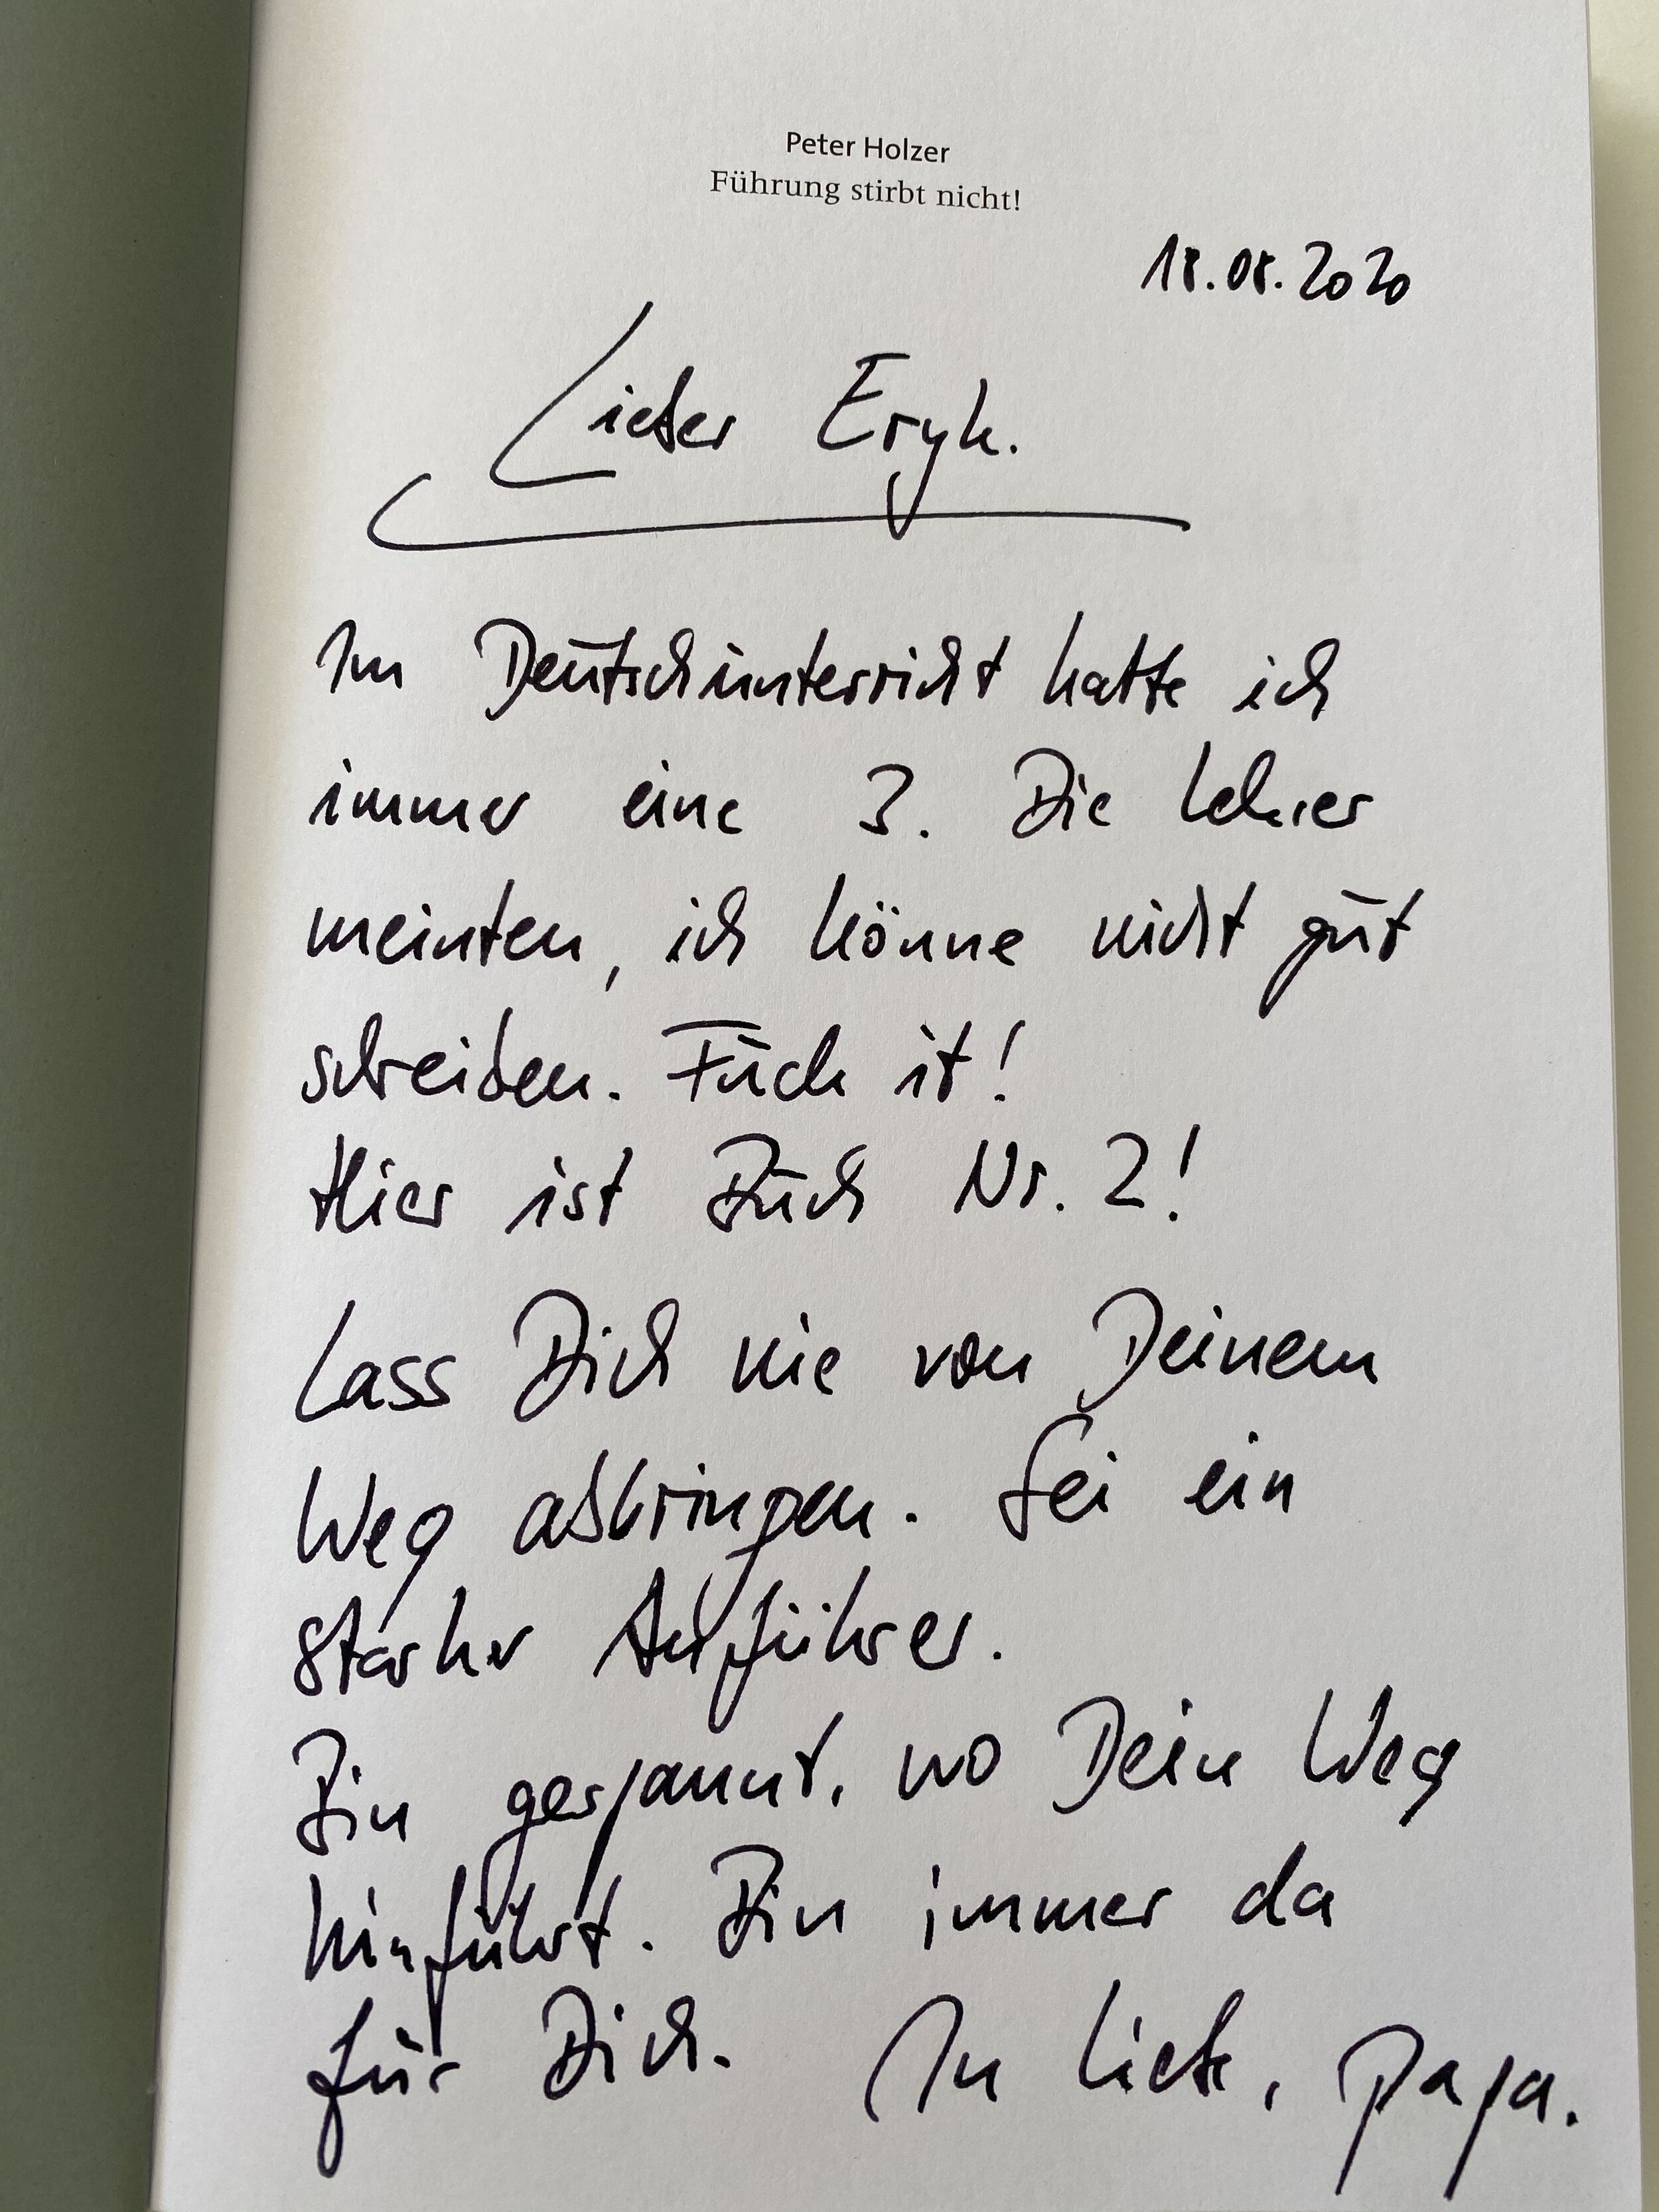 Peter Holzer
Führung stirbt nicht!
18.08.2020
Lieber Eryk.
Im Deutschunterricht hatte ich
immer eine 3. Die Lehrer
meinten, ich könne nicht gut
schreiben. Fuck it!
Hier ist Buch Nr. 2!
Lass Dich nie von Deinem
Weg abbringen. Sei ein
starker Anführer.
Bin gespannt, wo Dein Weg
hinführt. Bin immer da
für Dich. In Liebe, Papa.